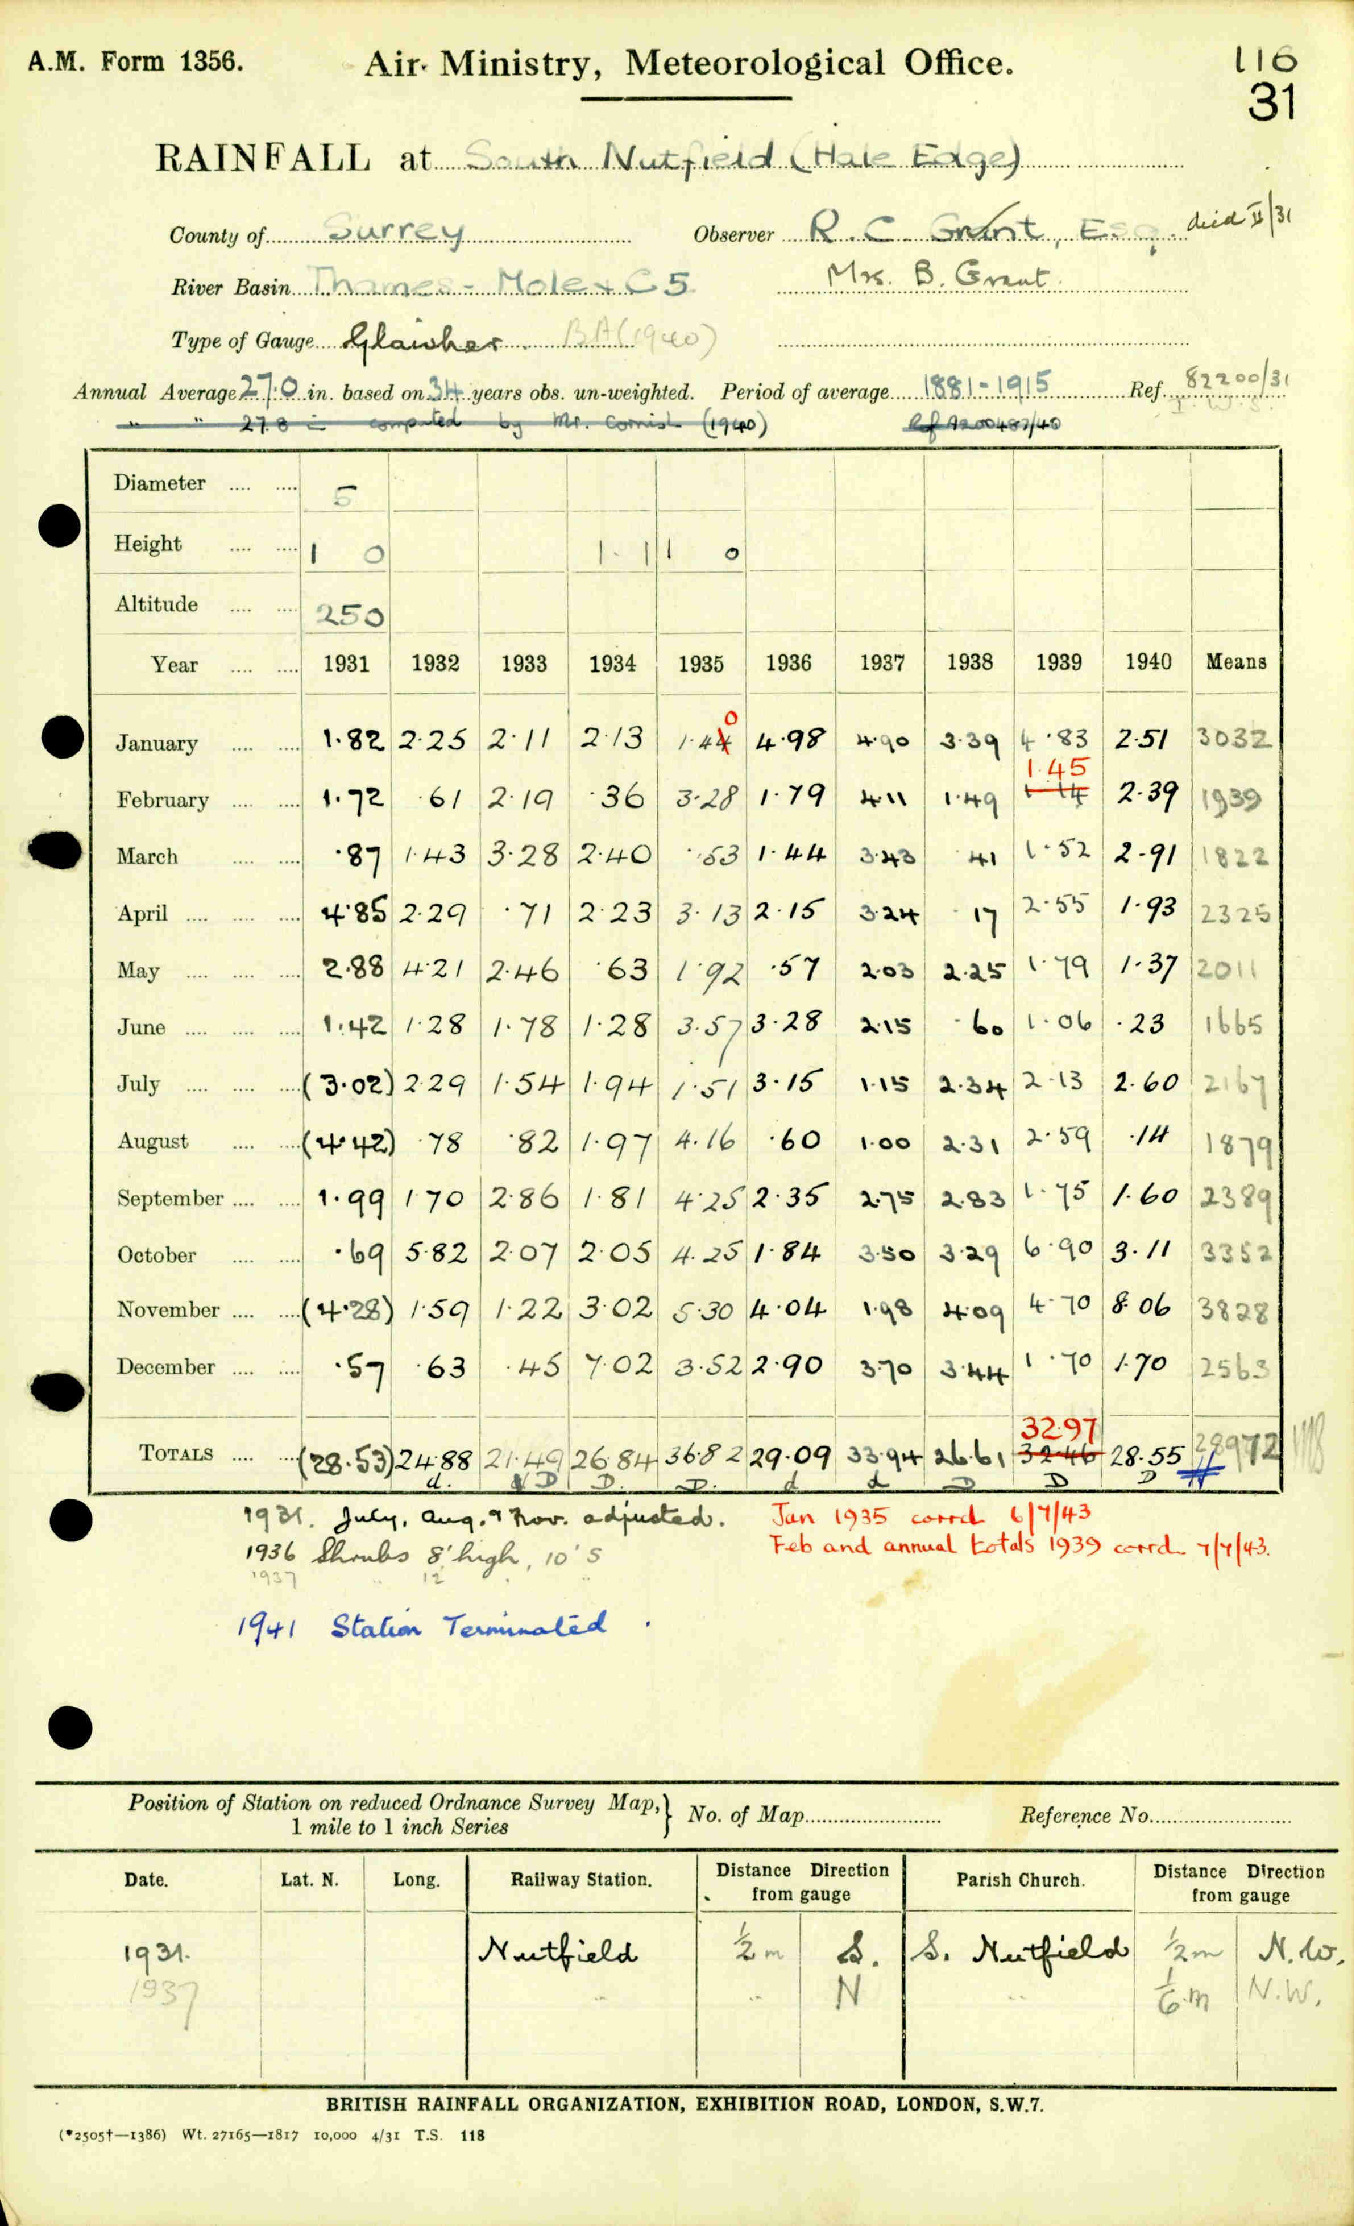 A.M. Form 1356. Air Ministry, Meteorological Office. 116
31
RAINFALL at South Nutfield (Hale Edge)
County of Surrey Observer R. C. Grant, Esq. died II/31
River Basin Thames - Mole + C5 Mrs. B. Grant
Type of Gauge Glaisher BA (1940)
Annual Average 27.0 in. based on 34 years obs. un-weighted. Period of average 1881-1915 Ref. 82200/31
" " 27.8 in computed by Mr. Cornish (1940) Ref A200487/40 I.W.S
Diameter 5
Height 1 0 1 11 1 0
Altitude 250
Year 1931 1932 1933 1934 1935 1936 1937 1938 1939 1940 Means
January 1.82 2.25 2.11 2.13 1.44 0 4.98 4.90 3.39 4.83 2.51 3032
February 1.72 .61 2.19 .36 3.28 1.79 4.11 1.49 1.45 2.39 1939
March .87 1.43 3.28 2.40 .53 1.44 3.43 .41 1.52 2.91 1822
April 4.85 2.29 .71 2.23 3.13 2.15 3.24 .17 2.55 1.93 2325
May 2.88 4.21 2.46 .63 1.92 .57 2.03 2.25 1.79 1.37 2011
June 1.42 1.28 1.78 1.28 3.57 3.28 2.15 .60 1.06 .23 1665
July (3.02) 2.29 1.54 1.94 1.51 3.15 1.15 2.34 2.13 2.60 2167
August (4.42) .78 .82 1.97 4.16 .60 1.00 2.31 2.59 .14 1879
September 1.99 1.70 2.86 1.81 4.25 2.35 2.75 2.83 1.75 1.60 2389
October .69 5.82 2.07 2.05 4.25 1.84 3.50 3.29 6.90 3.11 3352
November (4.28) 1.59 1.22 3.02 5.30 4.04 1.98 4.09 4.70 8.06 3828
December .57 .63 .45 7.02 3.52 2.90 3.70 3.44 1.70 1.70 2563
32.97
TOTALS (28.53) 24.88 21.49 26.84 36.82 29.09 33.94 26.61 32.46 28.55 28972
d. D D. D. d d D D D
1931. July, Aug. & Nov. adjusted. Jan 1935 corrd 6/7/43
1936 Shrubs 8' high, 10' S Feb and annual totals 1939 corrd 7/7/43.
1937 " 12 " "
1941 Station Terminated.
Position of Station on reduced Ordnance Survey Map, 1 mile to 1 inch Series } No. of Map Reference No.
Date. Lat. N. Long. Railway Station. Distance Direction from gauge Parish Church. Distance Direction from gauge
1931. Nutfield ½ m S. S. Nutfield ½ m N.W.
1937 " " N " 1/6 m N.W.
BRITISH RAINFALL ORGANIZATION, EXHIBITION ROAD, LONDON, S.W.7.
(*2505†—1386) Wt. 27165—1817 10,000 4/31 T.S. 118